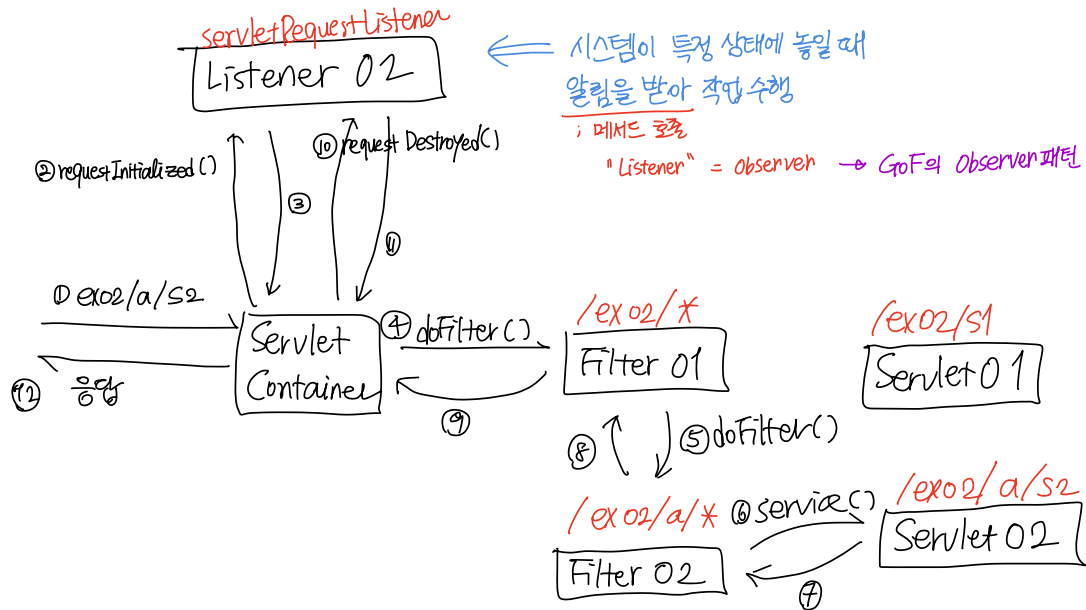 servletRequestListener
Listener 02
시스템이 특정 상태에 놓일 때
알림을 받아 작업 수행
; 메서드 호출
"Listener" = Observer → GoF의 Observer패턴
② requestInitialized()
③
⑩ requestDestroyed()
⑪
① ex02/a/s2
Servlet
Container
⑫ 응답
④ doFilter()
⑨
/ex02/*
Filter 01
/ex02/s1
Servlet 01
⑧
⑤ doFilter()
/ex02/a/*
Filter 02
⑥ service()
⑦
/ex02/a/s2
Servlet 02